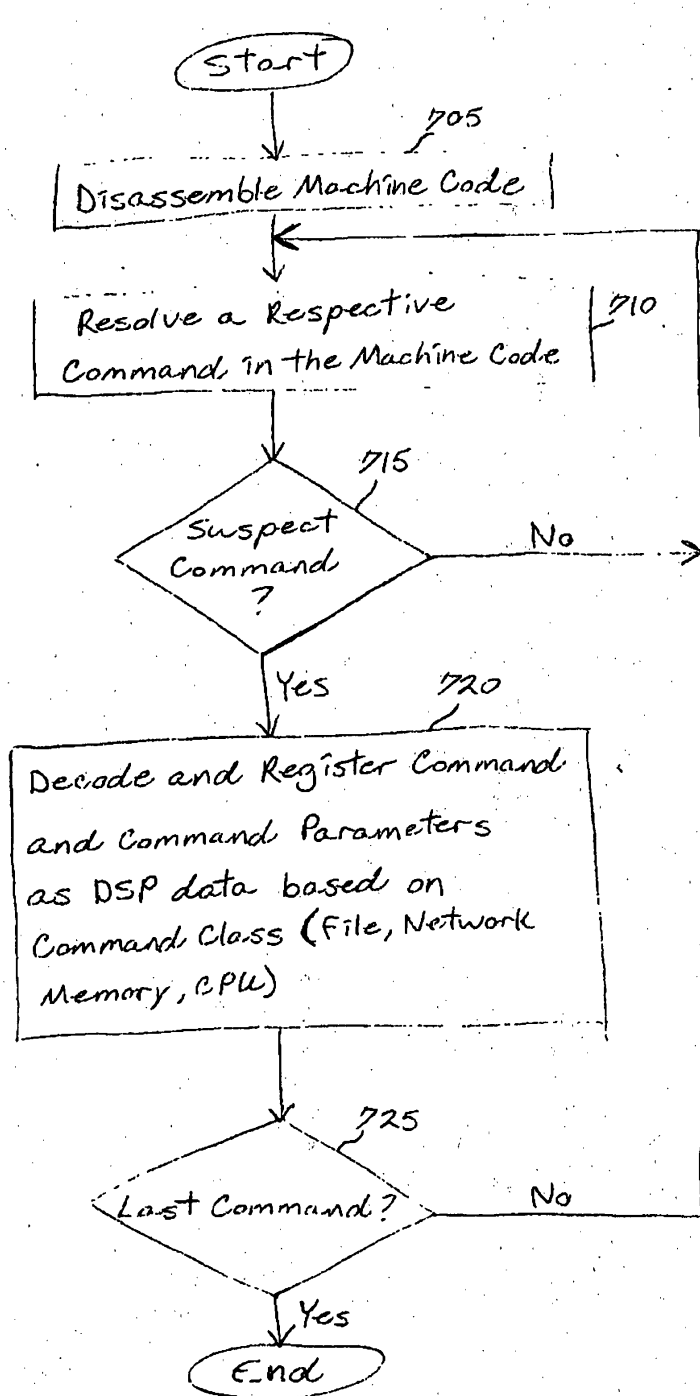 Start
705
Disassemble Machine Code
Resolve a Respective
Command in the Machine Code
710
715
Suspect
Command
?
No
Yes
720
Decode and Register Command
and Command Parameters
as DSP data based on
Command Class (File, Network
Memory, CPU)
725
Last Command?
No
Yes
End